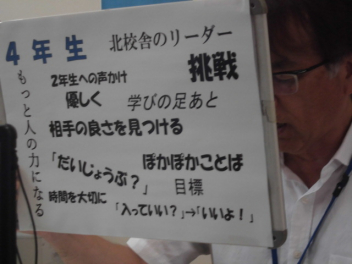 4年生 北校舎のリーダー
もっと人の力になる
2年生への声かけ 挑戦
優しく 学びの足あと
相手の良さを見つける
「だいじょうぶ?」 ぽかぽかことば
目標
時間を大切に 「入っていい?」→「いいよ!」